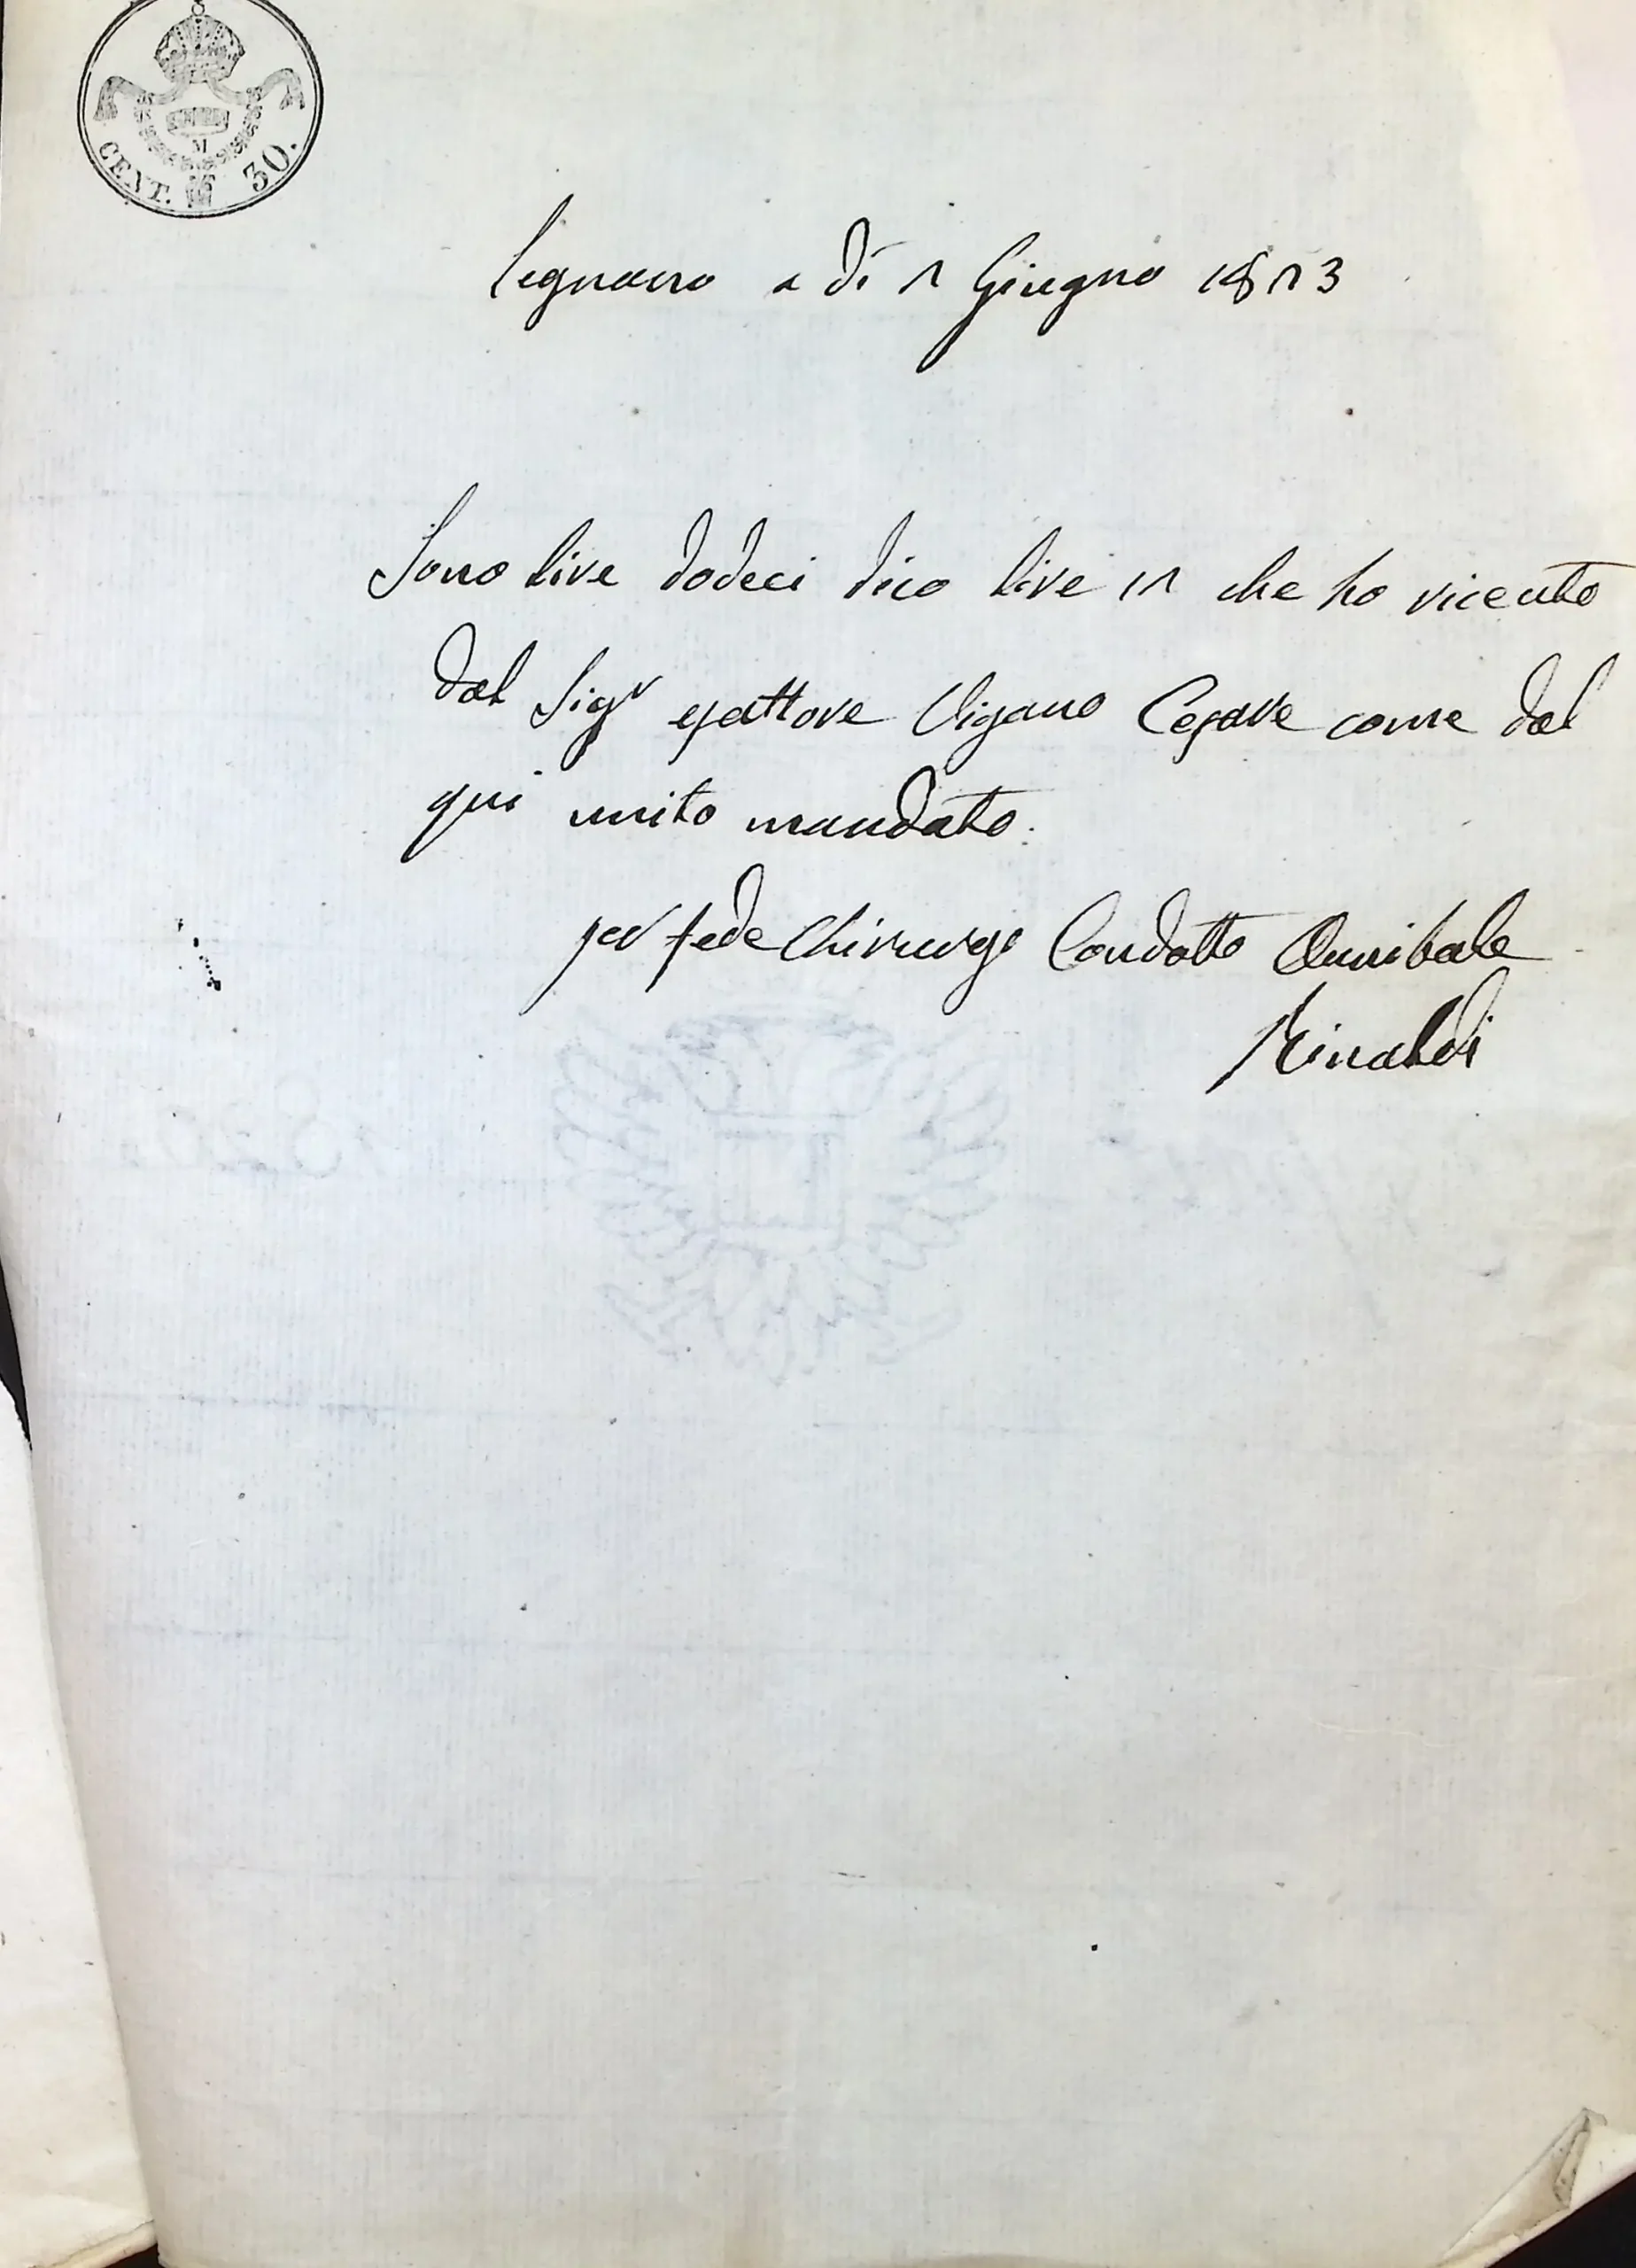 CENT. 30.
M
Legnano a dì 2 Giugno 1823
Sono lire dodeci dico lire 12 che ho riceuto
dal Sigr esattore Vigano Cesare come dal
qui unito mandato.
per fede Chirurgo Condotto Annibale
Rinaldi